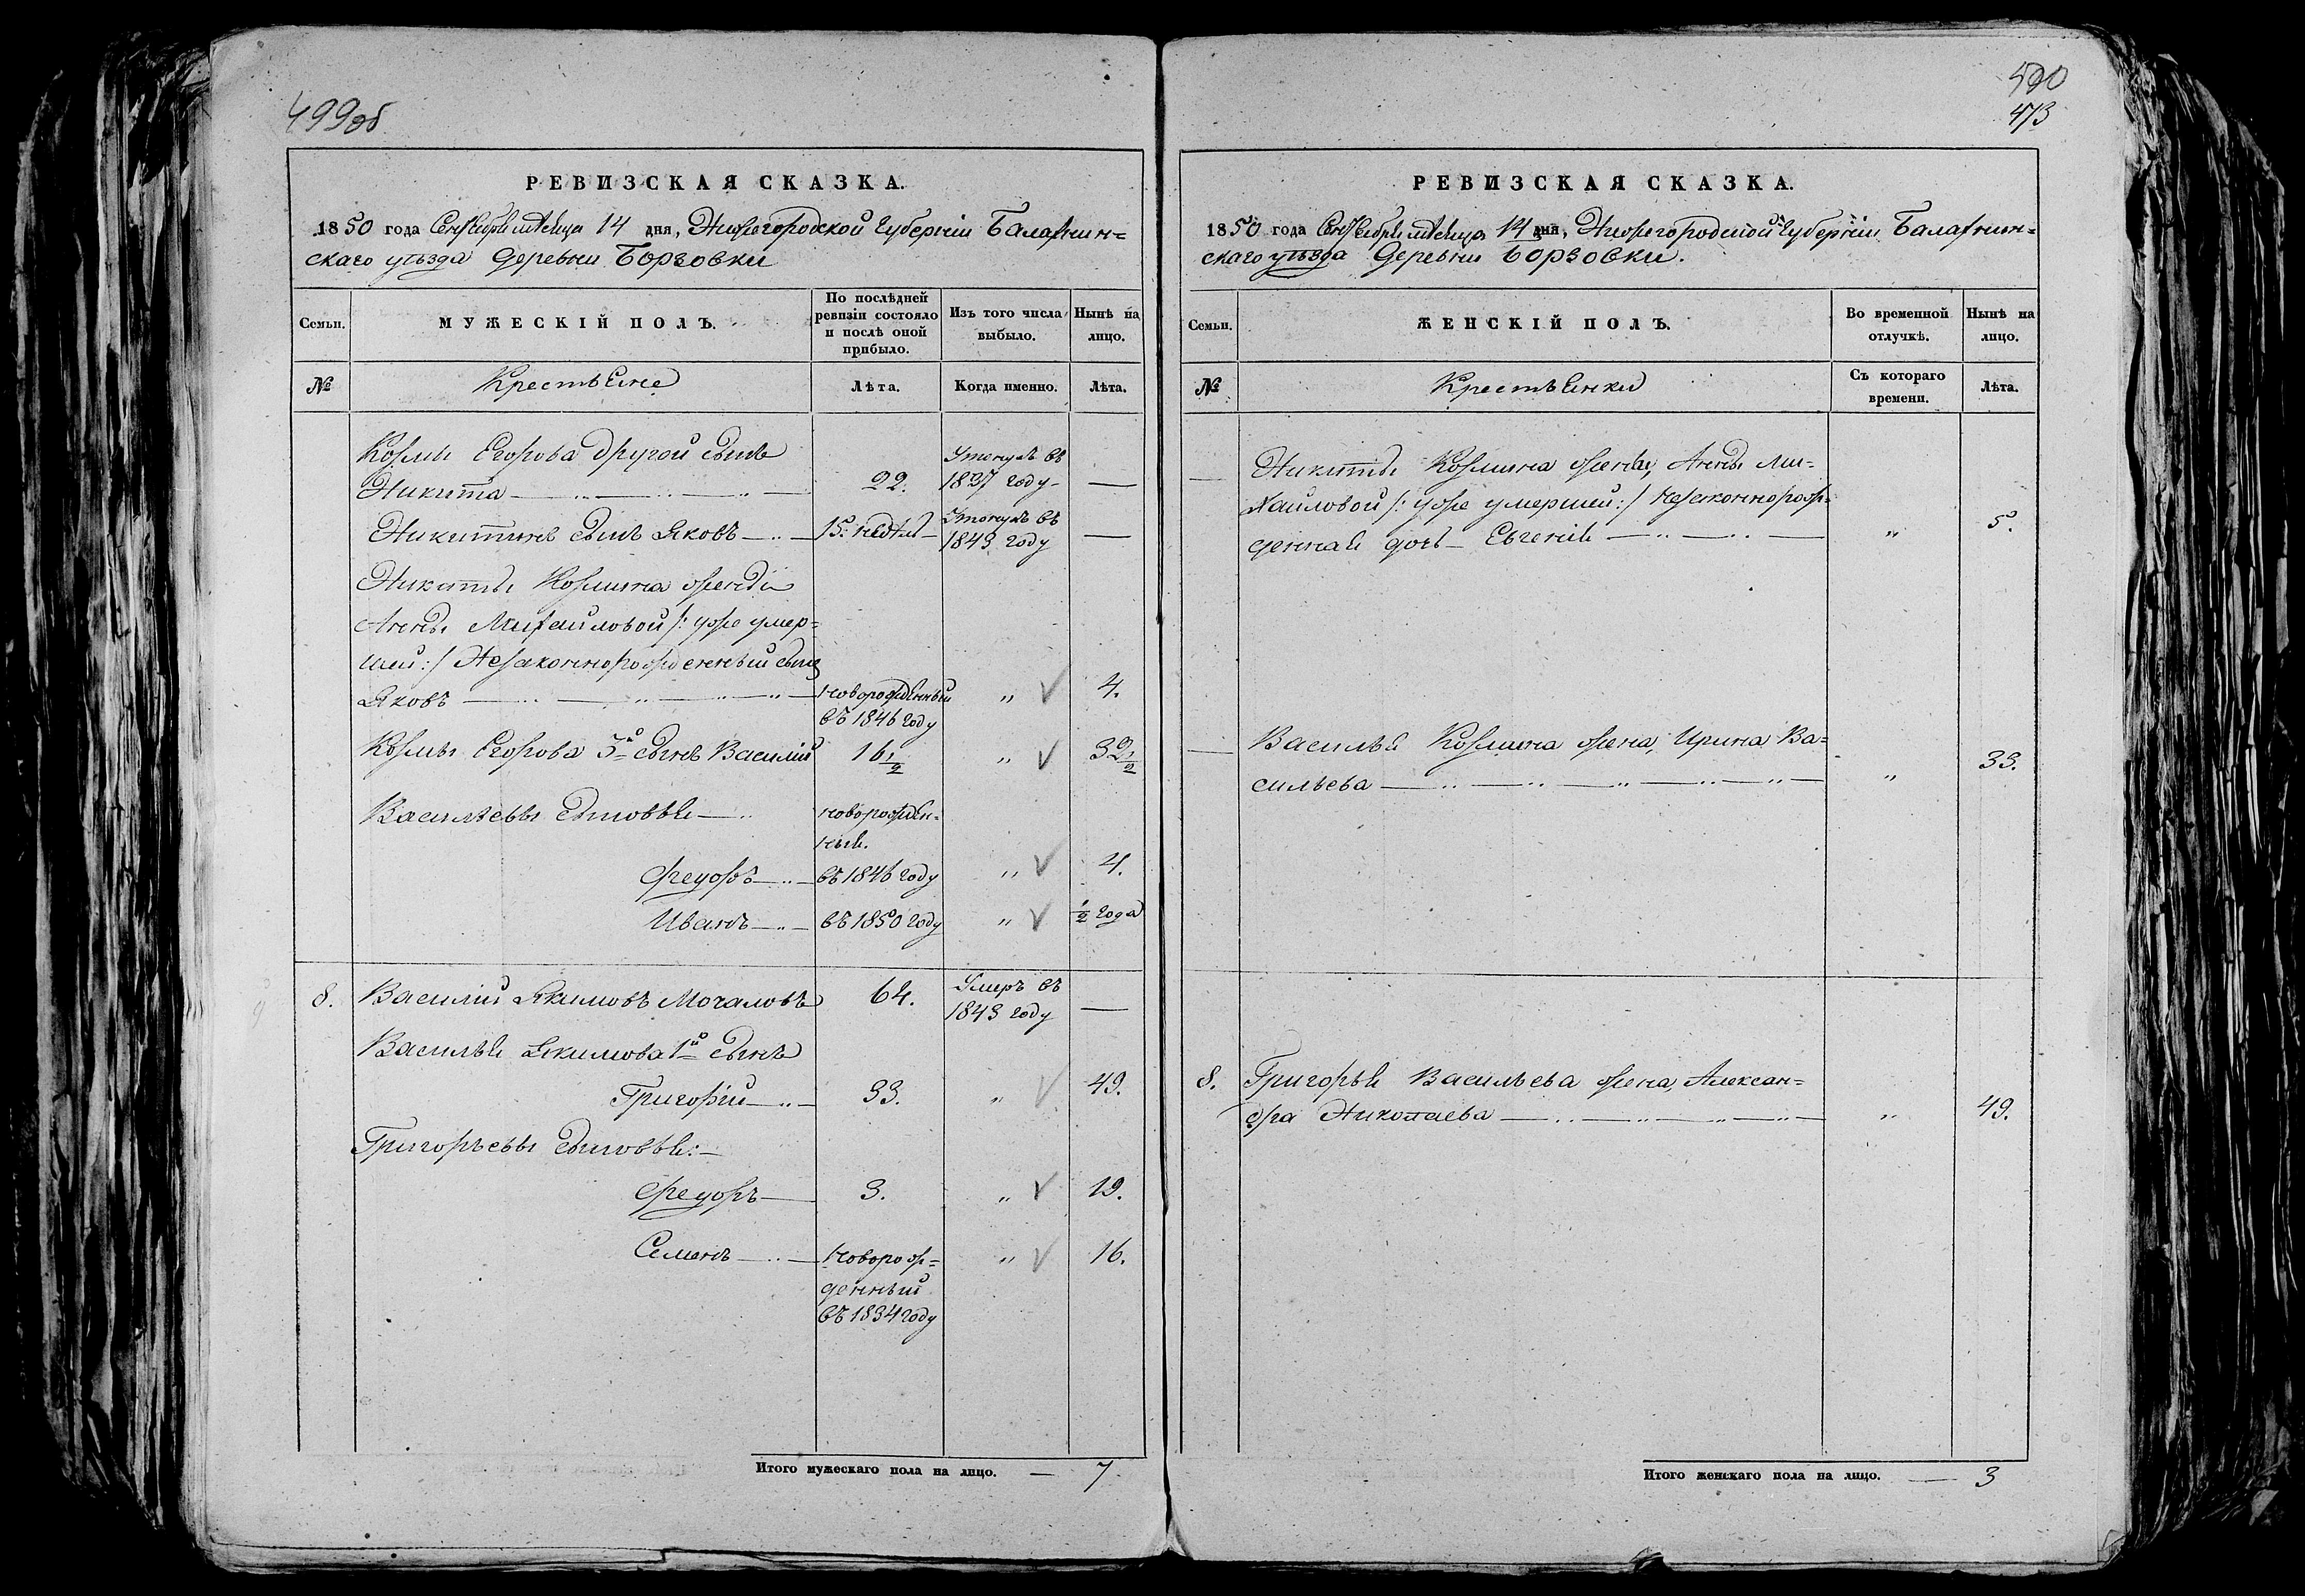 499об
РЕВИЗСКАЯ СКАЗКА.
1850 года Сентября месяца 14 дня, Нижегородской Губерніи Балахнин=
скаго уѣзда Деревни Борзовки
Семьи.
МУЖЕСКІЙ ПОЛЪ.
По послѣдней ревизіи состояло и послѣ оной прибыло.
Изъ того числа выбыло.
Нынѣ на лицо.
№
Крестьяне
Лѣта.
Когда именно.
Лѣта.
Козмы Егорова другой сынъ
Никита 22. Утонулъ въ 1837 году —
Никитинъ сынъ Яковъ 15. недѣль Утонулъ въ 1843 году —
Никиты Козмина жены
Анны Михайловой /: уже умер=
шей :/ Незаконнорожденный сынъ
Яковъ новорожденный въ 1846 году „ 4.
Козмы Егорова 3й сынъ Василій 16 1/2 „ 32 1/2
Васильевы сыновья новорожден=
ныя.
Федоръ въ 1846 году „ 4.
Иванъ въ 1850 году „ 1/2 года
8. Василій Якимовъ Мочаловъ 64. Умеръ въ 1843 году —
Василья Якимова 1й сынъ
Григорій 33. „ 49.
Григорьевы сыновья:
Федоръ 3. „ 19.
Семенъ Новорож=
денный
въ 1834 году „ 16.
Итого мужескаго пола на лицо. — 7
500
473
РЕВИЗСКАЯ СКАЗКА.
1850 года Сентября месяца 14 дня, Нижегородской Губерніи Балахнин=
скаго уѣзда Деревни Борзовки.
Семьи.
ЖЕНСКІЙ ПОЛЪ.
Во временной отлучкѣ.
Нынѣ на лицо.
№
Крестьянки
Съ котораго времени.
Лѣта.
Никиты Козмина жены, Анны Ми=
хайловой /: уже умершей :/ незаконнорож=
денная дочь Евгенія „ 5.
Василья Козмина жена, Ирина Ва=
сильева „ 33.
8. Григорья Васильева жена, Алексан=
дра Николаева „ 49.
Итого женскаго пола на лицо. — 3